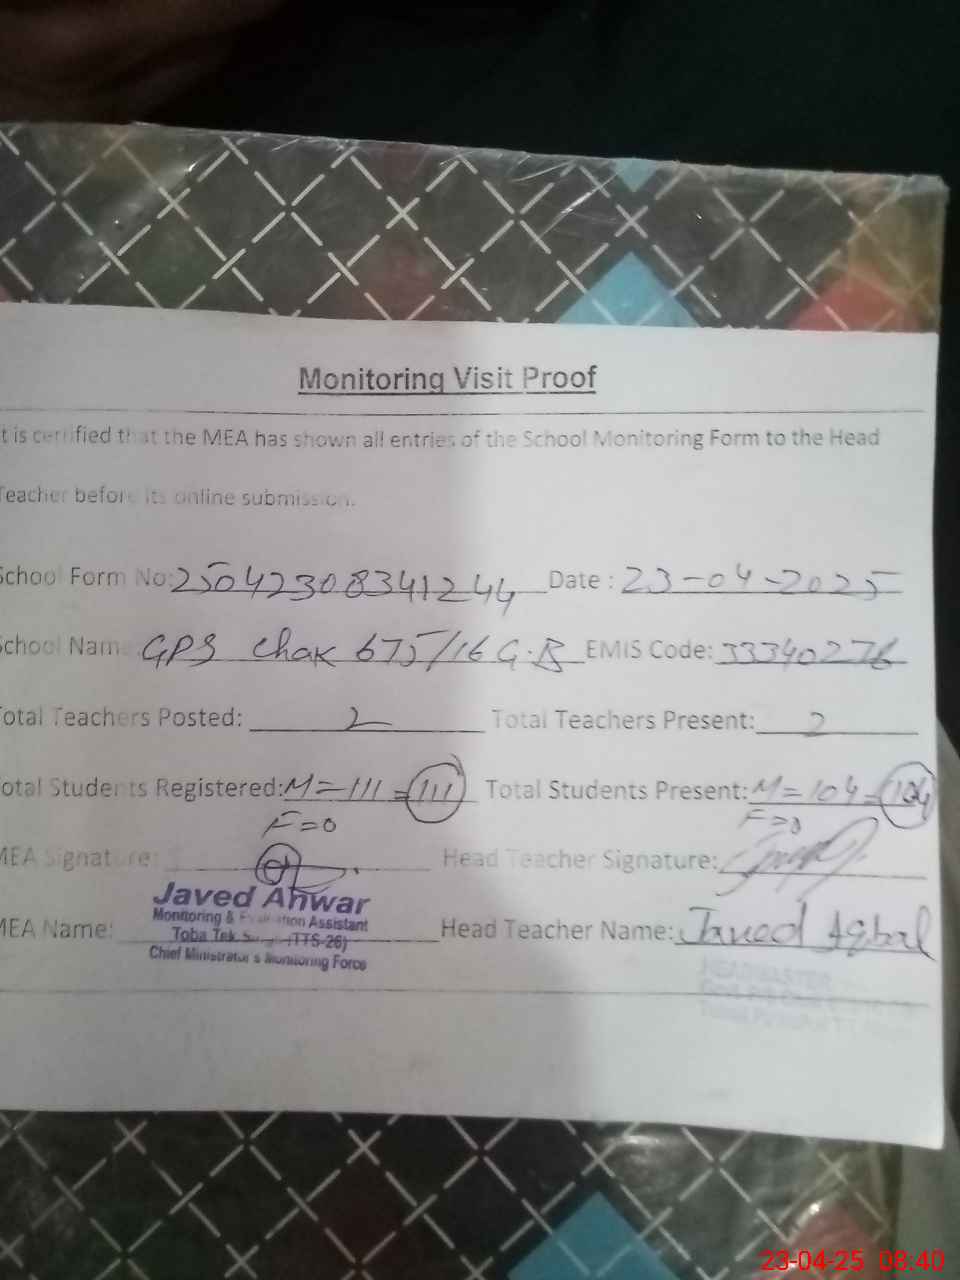 Monitoring Visit Proof
t is certified that the MEA has shown all entries of the School Monitoring Form to the Head
Teacher before its online submission.
School Form No: 25042308341244 Date : 23-04-2025
School Name GPS Chak 675/16 G.B EMIS Code: 33340276
Total Teachers Posted: 2 Total Teachers Present: 2
otal Students Registered: M=111 =111 Total Students Present: M=104=104
F=0 F=0
MEA Signature: Head Teacher Signature:
Javed Anwar
Monitoring & Evaluation Assistant
Toba Tek (TTS-26)
Chief Minister's Monitoring Force
MEA Name: Head Teacher Name: Javed Iqbal
HEADMASTER
23-04-25 08:40